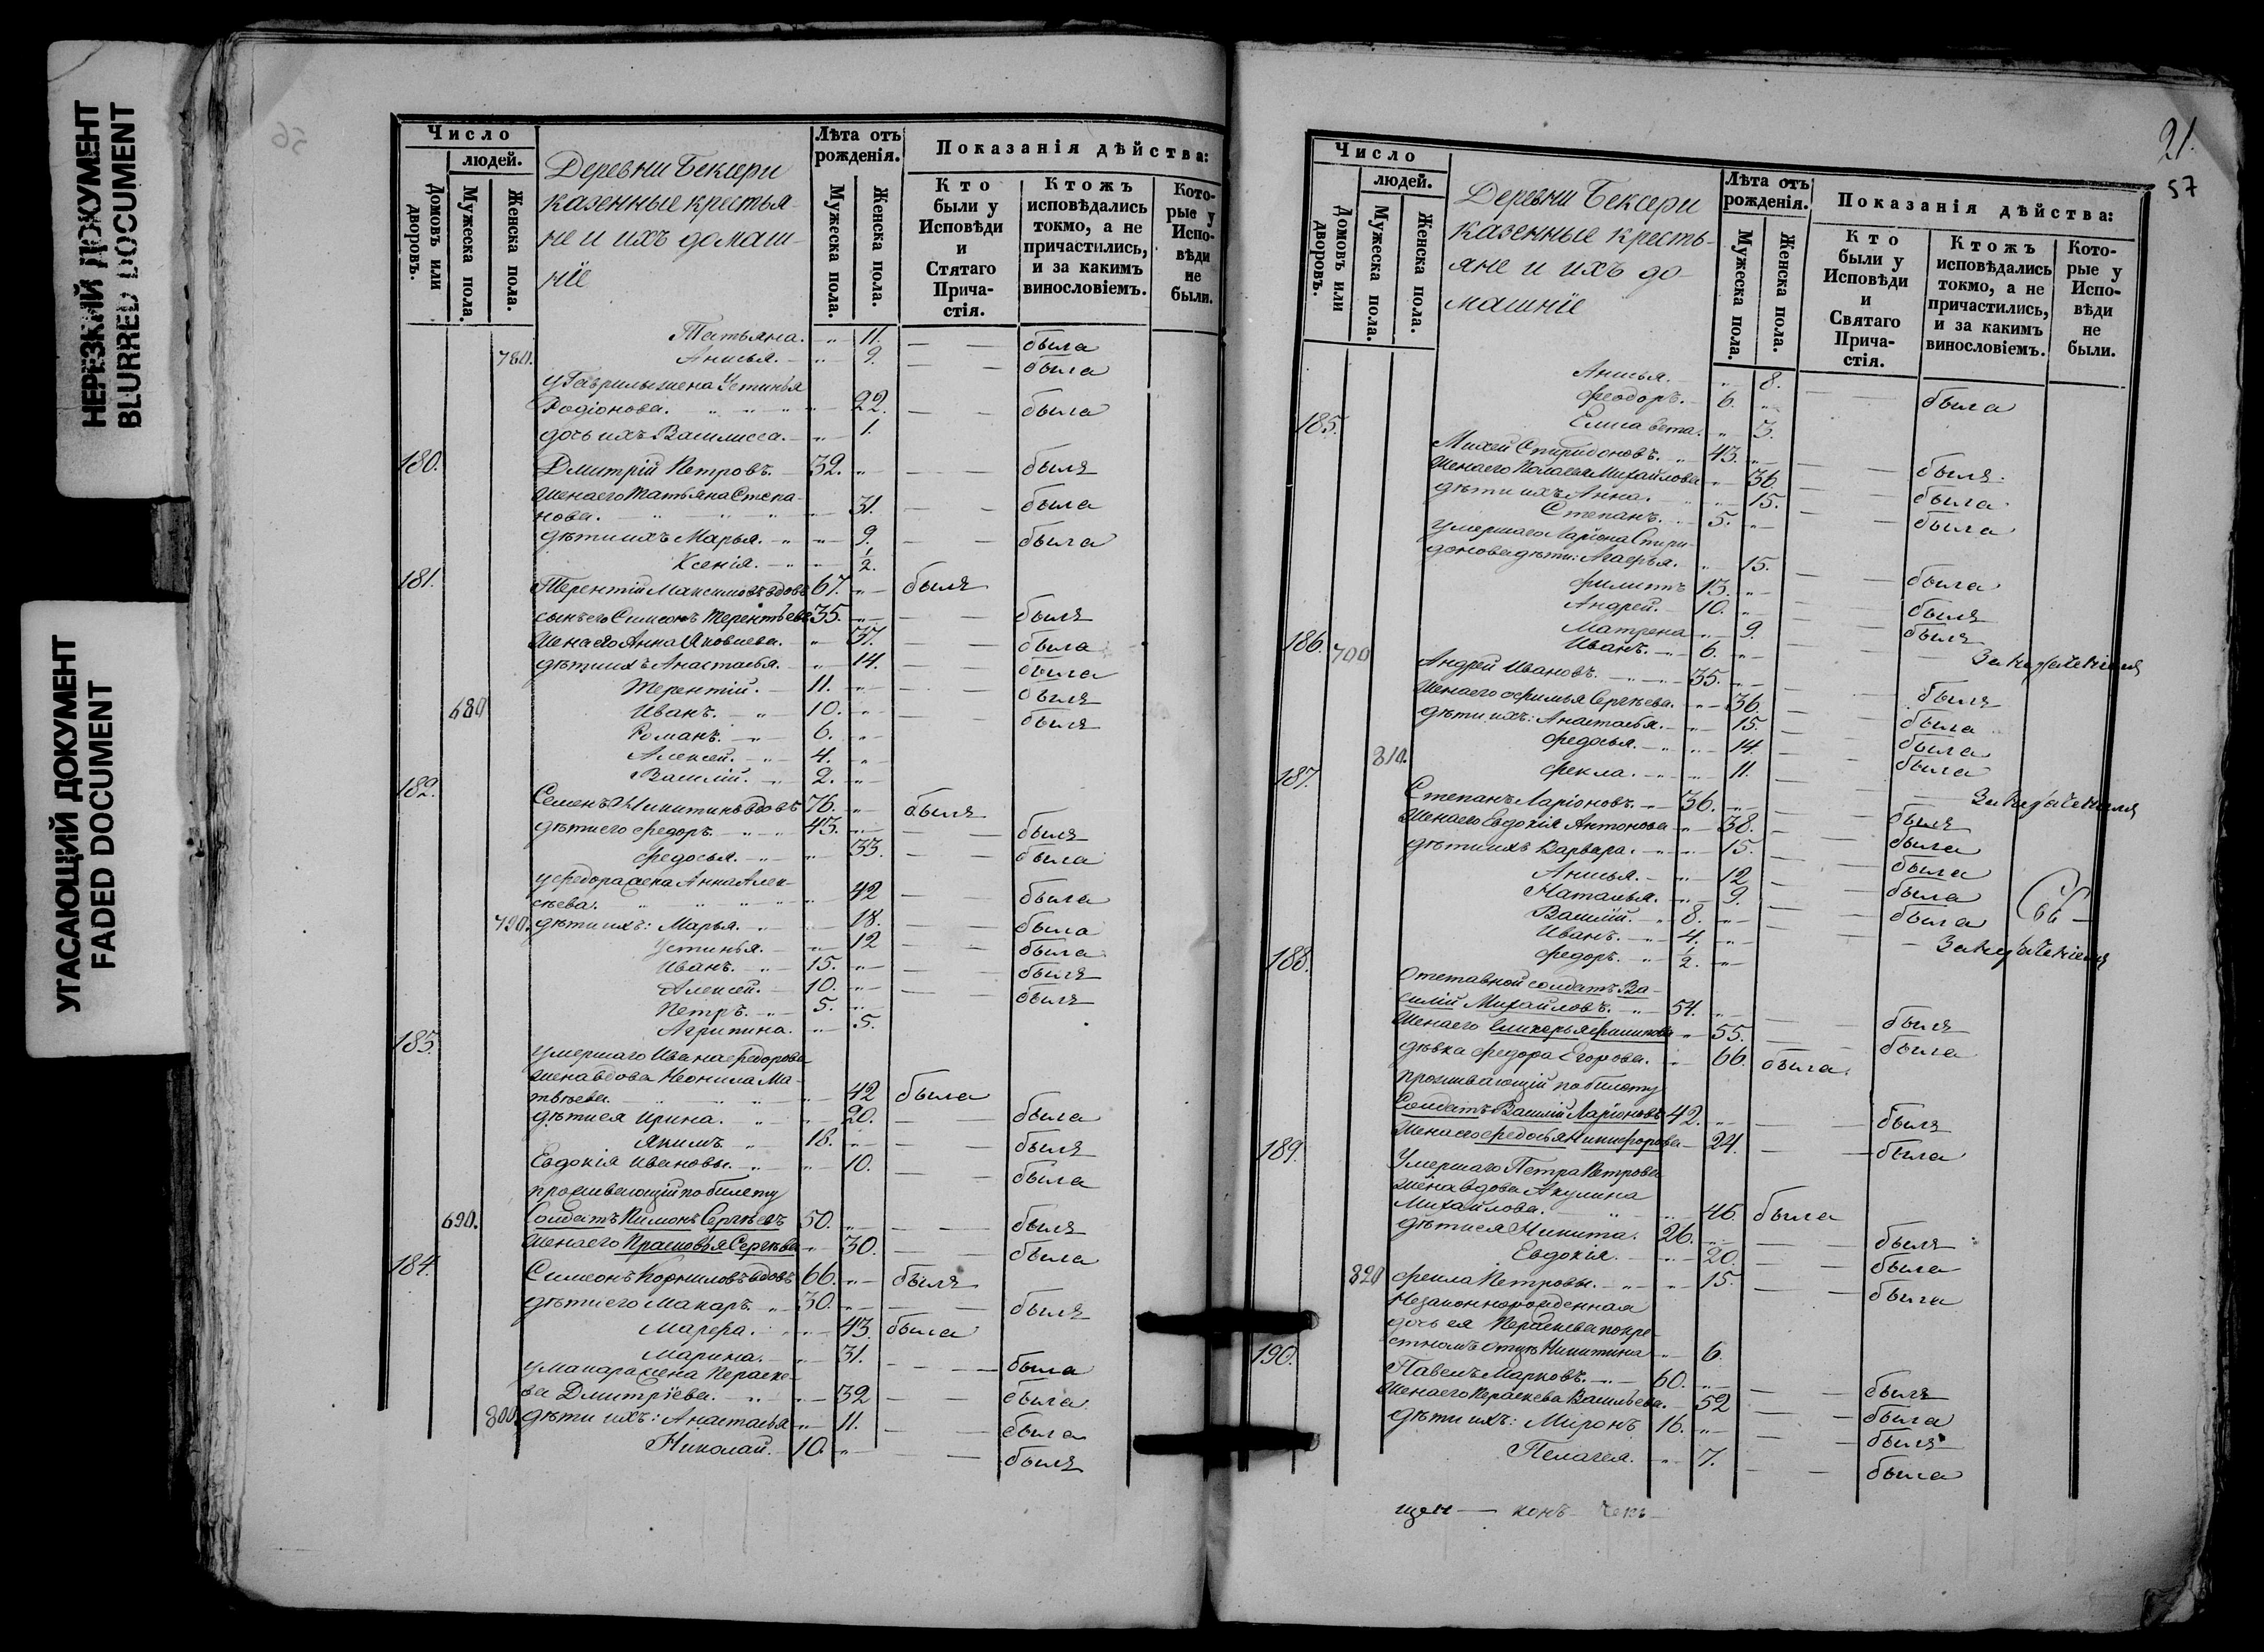 НЕРЕЗКИЙ ДОКУМЕНТ
BLURRED DOCUMENT
УГАСАЮЩИЙ ДОКУМЕНТ
FADED DOCUMENT
56
Число
людей.
Домовъ или дворовъ.
Мужеска пола.
Женска пола.
Деревни Бекшри
казенные крестья-
не и ихъ домаш-
ніе
Лѣта отъ рожденія.
Мужеска пола.
Женска пола.
Показанія дѣйства:
Кто были у Исповѣди и Стятаго Прича-стія.
Ктожъ исповѣдались токмо, а не причастились, и за какимъ винословіемъ.
Кото-рые у Испо-вѣди не были.
Татьяна. 11. была
780. Анисья. 9. была
у Гаврилы жена Устинья
Родіонова. 22. была
дочь ихъ Василисса. 1.
180. Дмитрій Петровъ. 32. былъ
Жена его Татьяна Степа-
нова. 31. была
дѣти ихъ Марья. 9. была
Ксенія. 1/2.
181. Терентій Максимовъ вдовъ 67. былъ
сынъ его Симеонъ Терентьевъ 35. былъ
Жена его Анна Яковлева. 37. была
дѣти ихъ Анастасья. 14. была
Терентій. 11. былъ
680 Иванъ. 10. былъ
Романъ. 6.
Алексей. 4.
Василій. 2.
182. Семенъ Никитинъ вдовъ 76. былъ
дѣти его Федоръ. 43. былъ
Федосья. 33. была
у Федора жена Анна Алек-
сѣева. 42 была
790. дѣти ихъ: Марья. 18. была
Устинья. 12 была
Иванъ. 15. былъ
Алексей. 10. былъ
Петръ. 5.
Агрипина. 5.
183. умершаго Ивана Федорова
жена вдова Неонила Ма-
твѣева. 42 была
дѣти ея Ирина. 20. была
Якимъ. 18. былъ
Евдокія Ивановы. 10. была
проживающій по билету
690. Солдатъ Пимонъ Сергѣевъ 50. былъ
Жена его Прасковья Сергѣева 30. была
184. Симеонъ Корниловъ вдовъ 66. былъ
дѣти его Макаръ. 30. былъ
Марфа. 43. была
Марина. 31. была
у Макара жена Параске-
ва Дмитріева. 32 была
800. дѣти ихъ: Анастасья 11. была
Николай. 10. былъ
21.
57
Число
людей.
Домовъ или дворовъ.
Мужеска пола.
Женска пола.
Деревни Бекшри
казенные кресть-
яне и ихъ до-
машніе
Лѣта отъ рожденія.
Мужеска пола.
Женска пола.
Показанія дѣйства:
Кто были у Исповѣди и Святаго Прича-стія.
Ктожъ исповѣдались токмо, а не причастились, и за какимъ винословіемъ.
Кото-рые у Испо-вѣди не были.
Анисья. 8. была
Феодоръ. 6.
Елисавета. 3.
185. Михей Спиридоновъ. 43. былъ
Жена его Пелагея Михайлова 36. была
дѣти ихъ Анна. 15. была
Степанъ. 5.
умершаго Ларіона Спири-
донова дѣти: Агафья. 15. была
Филиппъ 13. былъ
Андрей. 10. былъ
Матрена 9.
Иванъ. 6.
186. 700 Андрей Ивановъ. 35. былъ
Жена его Афимья Сергѣева. 36. была
дѣти ихъ: Анастасья. 15. была
Федосья. 14. была
810. Фекла. 11.
187. Степанъ Ларіоновъ. 36. былъ
Жена его Евдокія Антонова 38. была
дѣти ихъ Варвара. 15. была
Анисья. 12 была
Наталья. 9. была
Василій. 8.
Иванъ. 4.
Федоръ. 1/2.
188. Отставной солдатъ Ва-
силій Михайловъ. 54. былъ
Жена его Гликерья Филипова 55. была
дѣвка Федора Егорова. 66. была.
проживающій по билету
Солдатъ Василій Ларіоновъ 42. былъ
Жена его Федосья Никифорова 24. была
189. Умершаго Петра Петрова
жена вдова Акулина
Михайлова. 46. была
дѣти ея Никита. 26. былъ
Евдокія. 20. была
820 Фекла Петровы. 15. была
Незаконнорожденная
дочь ея Параскева по кре-
стномъ отцѣ Никитина 6.
190. Павелъ Марковъ. 60. былъ
Жена его Параскева Васильева. 52 была
дѣти ихъ: Миронъ 16. былъ
Пелагея. 7. была